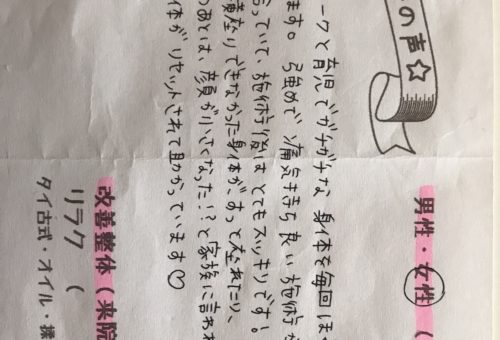 の声☆
男性・女性（
ークと育児でガチガチな身体を毎回ほ
ます。強めで痛気持ち良い施術が
っていて、施術後はとてもスッキリです！
座りできなかった身体がすっと座れたり、
あとは、顔が小さくなった!?と家族に言われ
体がリセットされて助かっています♡
改善整体（来院
リラク（
タイ古式・オイル・